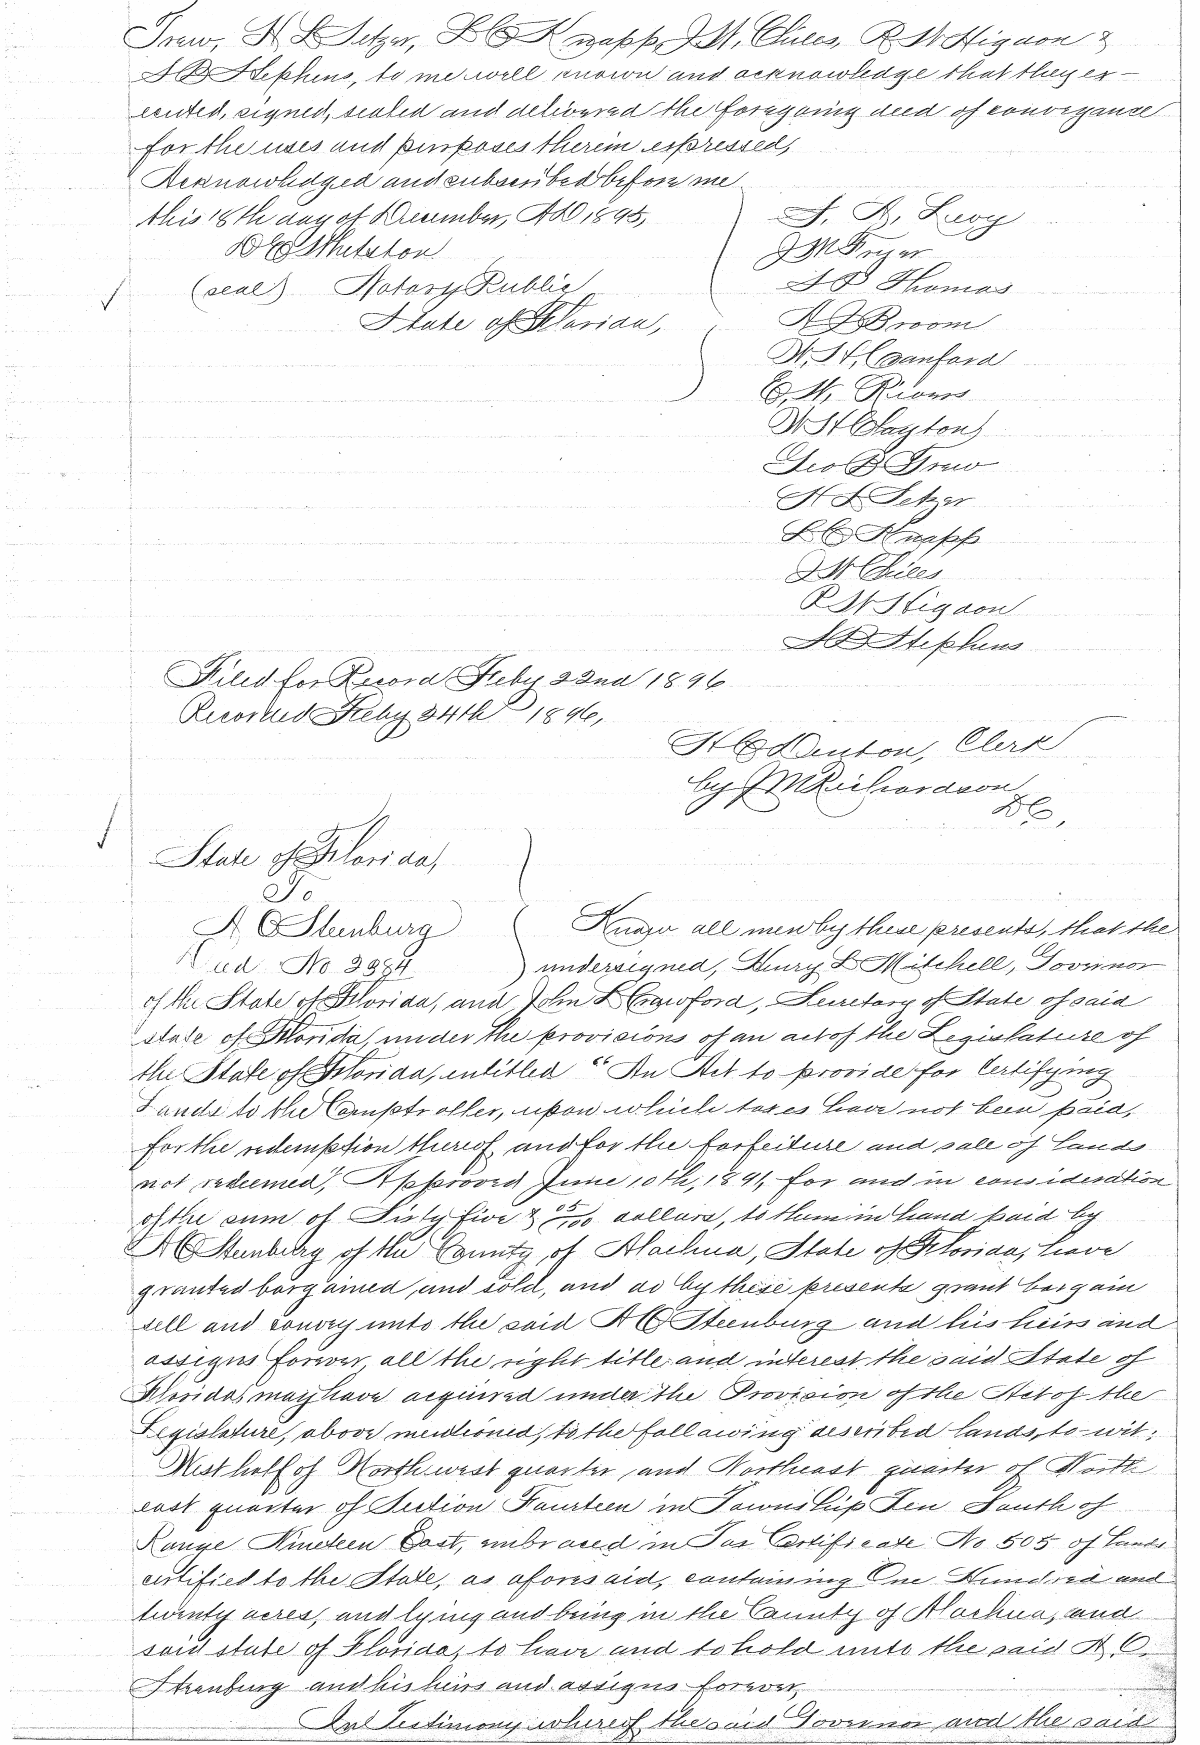 Trew, H L Setzer, L C Knapp, J W, Chiles, R W Higdon &
S B Stephens, to me well known and acknowledge that they ex-
ecuted, signed, sealed and delivered the foregoing deed of conveyance
for the uses and purposes therein expressed,
Acknowledged and subscribed before me
this 18th day of December, AD 1895,
S. A, Levy
Whetston
J M Fryer
(seal) Notary Public
Thomas
State of Florida,
Broom
W. H, Cranford
C, W, Rivers
W H Clayton
Geo B Trew
H L Setzer
L C Knapp
J W Chiles
R W Higdon
S B Stephens
Filed for Record Feby 22nd 1896
Recorded Feby 24th 1896,
H C Denton, Clerk
by J M Richardson
D C,
State of Florida,
To
A C Steenburg Know all men by these presents, that the
Deed No 3984 undersigned, Henry L Mitchell, Governor
of the State of Florida, and John L Crawford, Secretary of State of said
state of Florida, under the provisions of an act of the Legislature of
the State of Florida, entitled "An Act to provide for Certifying
Lands to the Comptroller, upon which taxes have not been paid,
for the redemption thereof and for the forfeiture and sale of lands
not redeemed", Approved June 10th, 1891, for and in consideration
of the sum of Sixty five & 05/100 dollars, to them in hand paid by
A C Steenburg of the County of Alachua, State of Florida, have
granted bargained and sold, and do by these presents grant bargain
sell and convey unto the said A C Steenburg and his heirs and
assigns forever, all the right title and interest the said State of
Florida, may have acquired under the Provision of the Act of the
Legislature, above mentioned, to the following described lands, to-wit:
West half of Northwest quarter and Northeast quarter of North
east quarter of Section Fourteen in Township Ten South of
Range Nineteen East, embraced in Tax Certificate No 505 of lands
certified to the State, as aforesaid, containing One Hundred and
twenty acres, and lying and being in the County of Alachua, and
said state of Florida, to have and to hold unto the said A. C.
Steenburg and his heirs and assigns forever,
In Testimony whereof, the said Governor and the said